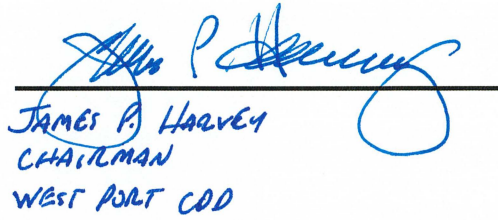 James P. Harvey
JAMES P. HARVEY
CHAIRMAN
WEST PORT CDD